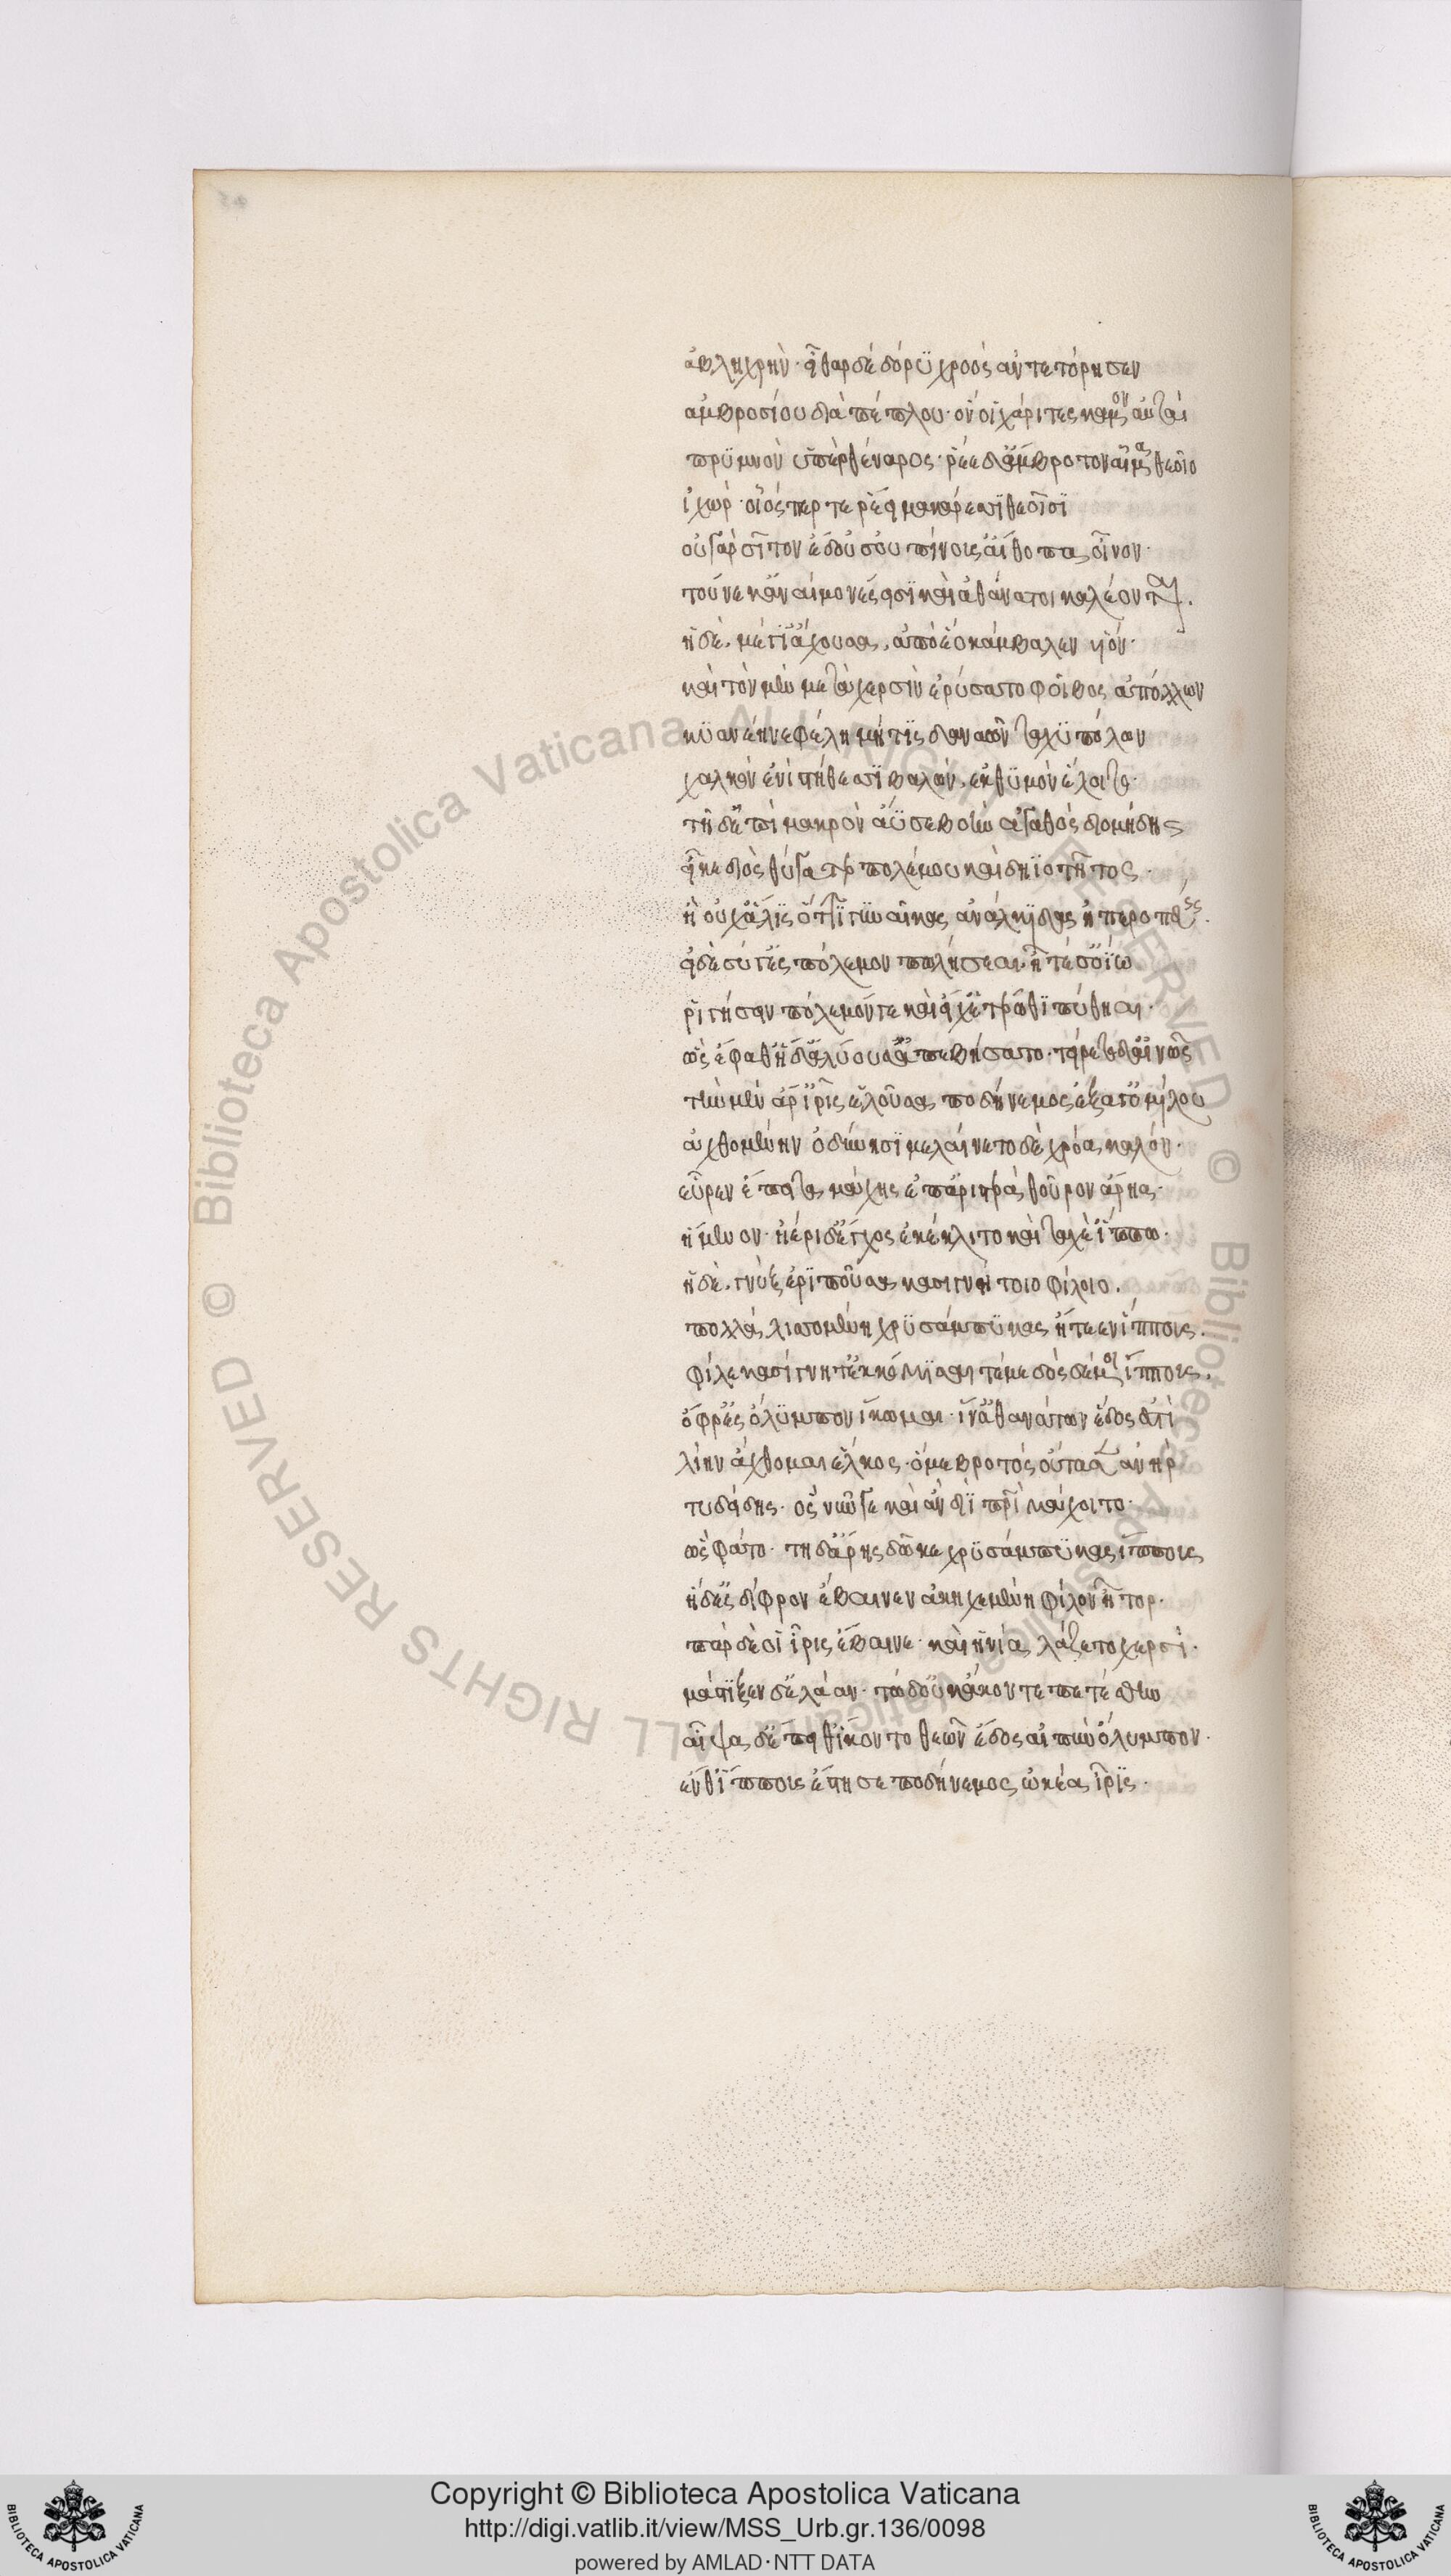 ἀβληχρὴν· εἶθαρ δὲ δόρϋ χροὸς ἀντετόρησεν
ἀμβροσίου διὰ πέπλου· ὅν οἱ χάριτες κάμον αὐταὶ
πρϋμνὸν ὕπερ θέναρος· ῥέε δ' ἄμβροτον αἷμα θεοῖο
ἰχώρ· οἷός πέρ τε ῥέει μακάρεσϊ θεοῖσϊ
οὐ γὰρ σῖτον ἔδουσ' οὐ πίνουσ' αἴθοπα οἶνον·
τούνεκ' ἀναίμονές εἰσϊ καὶ ἀθάνατοι καλέονται.
ἡ δὲ, μέγ' ἰάχουσα, ἀπὸ ἕο κάμβαλεν υἱόν·
καὶ τὸν μὲν μετὰ χερσὶν ἐρύσατο φοῖβος ἀπόλλων
κϋανέη νεφέλη μή τϊς δαναῶν ταχϋπώλων
χαλκὸν ἐνὶ στήθεσϊ βαλὼν, ἐκ θϋμὸν ἕλοιτο·
τῇ δ' ἐπὶ μακρὸν ἄϋσε βοὴν ἀγαθὸς διομήδης
εἶκε διὸς θύγατερ πολέμου καὶ δηϊοτῆτος·
ἦ οὐχ ἅλϊς ὅττϊ γϋναῖκας ἀνάλκϊδας ἠπεροπεύεις.
εἰ δὲ σύ γ' ἐς πόλεμον πωλήσεαι· ἦ τέ σ' ὀΐω
ῥϊγήσειν πόλεμόν γε καὶ εἴ χ' ἑτέρωθϊ πύθηαι·
ὣς ἔφαθ' ἡ δ' ἀλύουσ' ἀπεβήσατο· τείρετο δ' αἰνῶς
τὴν μὲν ἄρ' ἶρις ἑλοῦσα ποδήνεμος ἔξαγ' ὁμήλου
ἀχθομένην ὀδύνησϊ μελαίνετο δὲ χρόα καλόν·
εὗρεν ἔπειτα μάχης ἐπ' ἀριστερὰ θοῦρον ἄρηα·
ἥμενον· ἠέρι δ' ἔγχος ἐκέκλιτο καὶ ταχέ' ἵππω·
ἡ δὲ, γνὺξ ἐρϊποῦσα κασιγνήτοιο φίλοιο.
πολλὰ λισσομένη χρϋσάμπϋκας ᾔτεεν ἵππους.
φίλε κασίγνητέ κκόμϊσαί τέ με δὸς δέ μοι ἵππους.
ὄφρ' ἐς ὄλϋμπον ἵκωμαι· ἵν' ἀθανάτων ἕδος ἐστὶ
λίην ἄχθομαι ἕλκος· ὅ με βροτὸς οὔτασεν ἀνὴρ
τυδείδης· ὃς νῦν γε καὶ ἂν διϊ πατρὶ μάχοιτο·
ὣς φάτο· τῇ δ' ἄρης δῶκε χρϋσάμπϋκας ἵππους
ἡ δ' ἐς δίφρον ἔβαινεν ἀκηχεμένη φίλον ἦτορ·
πὰρ δέ οἱ ἶρις ἔβαινε· καὶ ἡνία λάζετο χερσί·
μάστϊξεν δ' ἐλάαν· τὼ δ' οὐκ ἄκοντε πετέσθην
αἶψα δ' ἔπειθ' ἵκοντο θεῶν ἕδος αἰπὺν ὄλυμπον·
ἔνθ' ἵππους ἔστησε ποδήνεμος ὠκέα ἶρϊς·
Copyright © Biblioteca Apostolica Vaticana
http://digi.vatlib.it/view/MSS_Urb.gr.136/0098
powered by AMLAD·NTT DATA
© Biblioteca Apostolica Vaticana ALL RIGHTS RESERVED
© Biblioteca Apostolica Vaticana ALL RIGHTS RESERVED
BIBLIOTECA APOSTOLICA VATICANA
BIBLIOTECA APOSTOLICA VATICANA